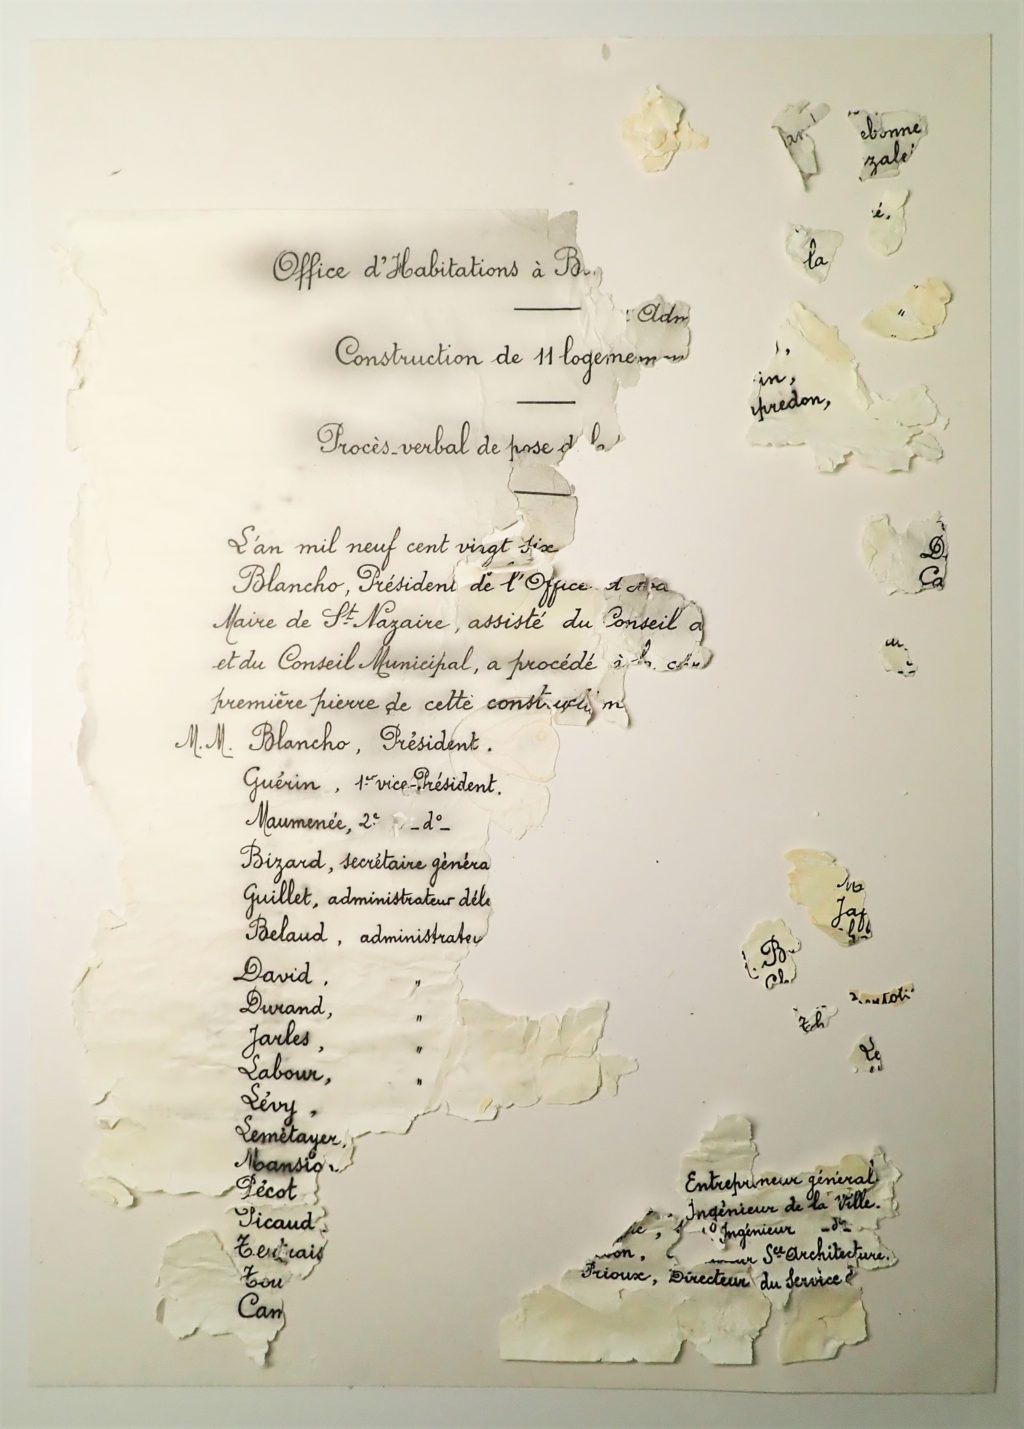 Office d'Habitations à B
Adm
Construction de 11 logemen
Procès-verbal de pose d la
L'an mil neuf cent vingt six
Blancho, Président de l'Office
Maire de St Nazaire, assisté du Conseil d
et du Conseil Municipal, a procédé à la
première pierre de cette construction
M.M. Blancho, Président.
Guérin, 1er vice-Président.
Maumenée, 2e _do_
Bizard, secrétaire généra
Guillet, administrateur délé
Belaud, administrateu
David, "
Durand, "
Jarles, "
Labour, "
Lévy,
Lemétayer,
Mansio
Pécot
Picaud
Tertrais
Tou
Cam
ebonne
zale
é.
la
"
in,
predon,
D
Ca
Jaf
B
Ch
Th
Le
Entrepreneur général
Ingénieur de la Ville.
Ingénieur _do_
on, Ste Architecture.
Prioux, Directeur du Service